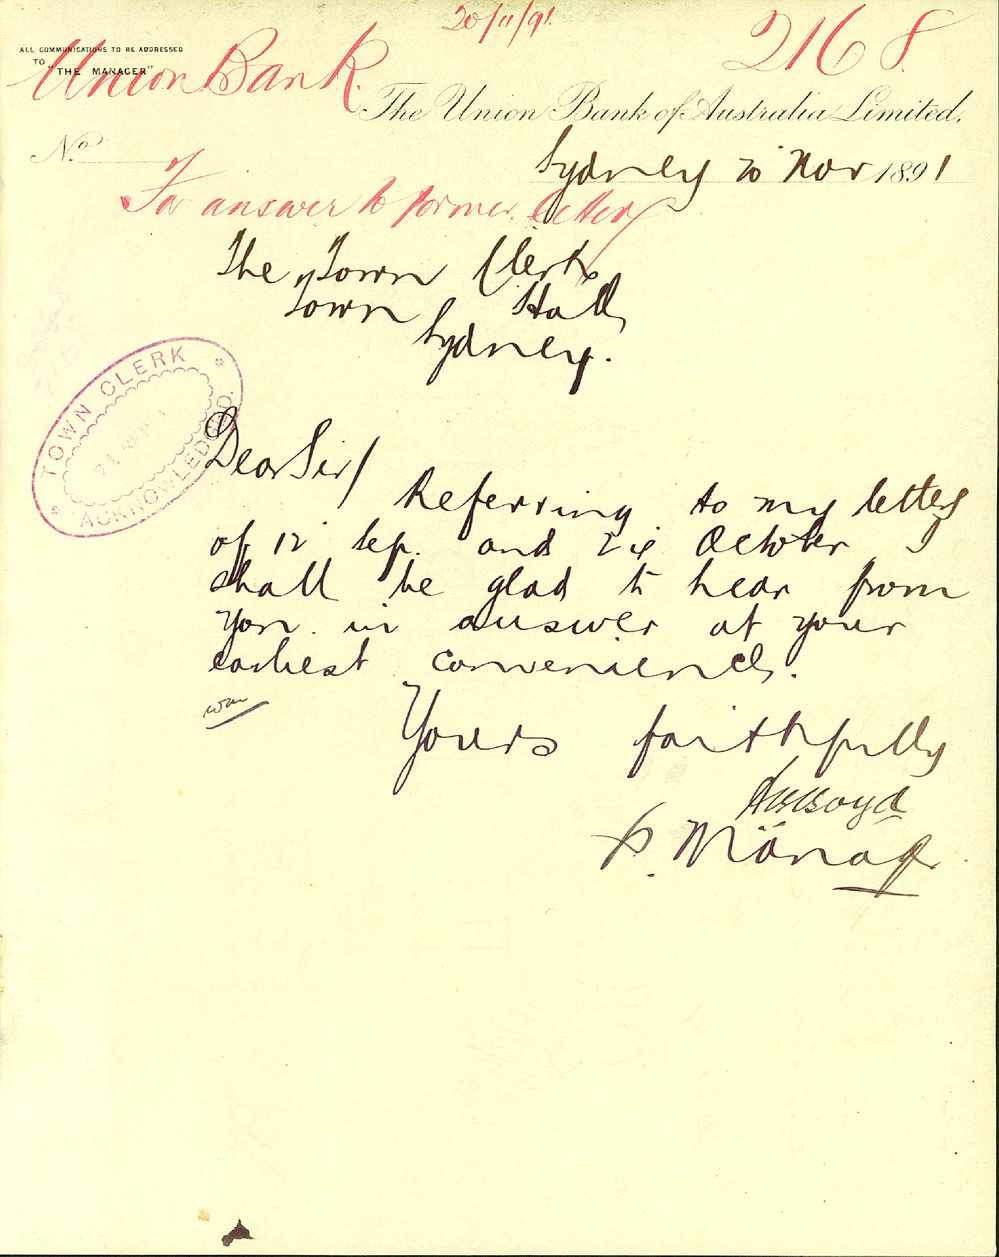 20/11/91.
2168.
ALL COMMUNICATIONS TO BE ADDRESSED
TO "THE MANAGER"
Union Bank.
The Union Bank of Australia Limited,
No.
Sydney 20 Nov 1891
For answer to former letters
The Town Clerk
Town Hall,
Sydney.
TOWN CLERK
ACKNOWLEDGED.
Dear Sir/
Referring to my letters
of 12 Sep. and October
shall be glad to hear from
you in answer at your
earliest convenience.
Yours faithfully
p. Manager